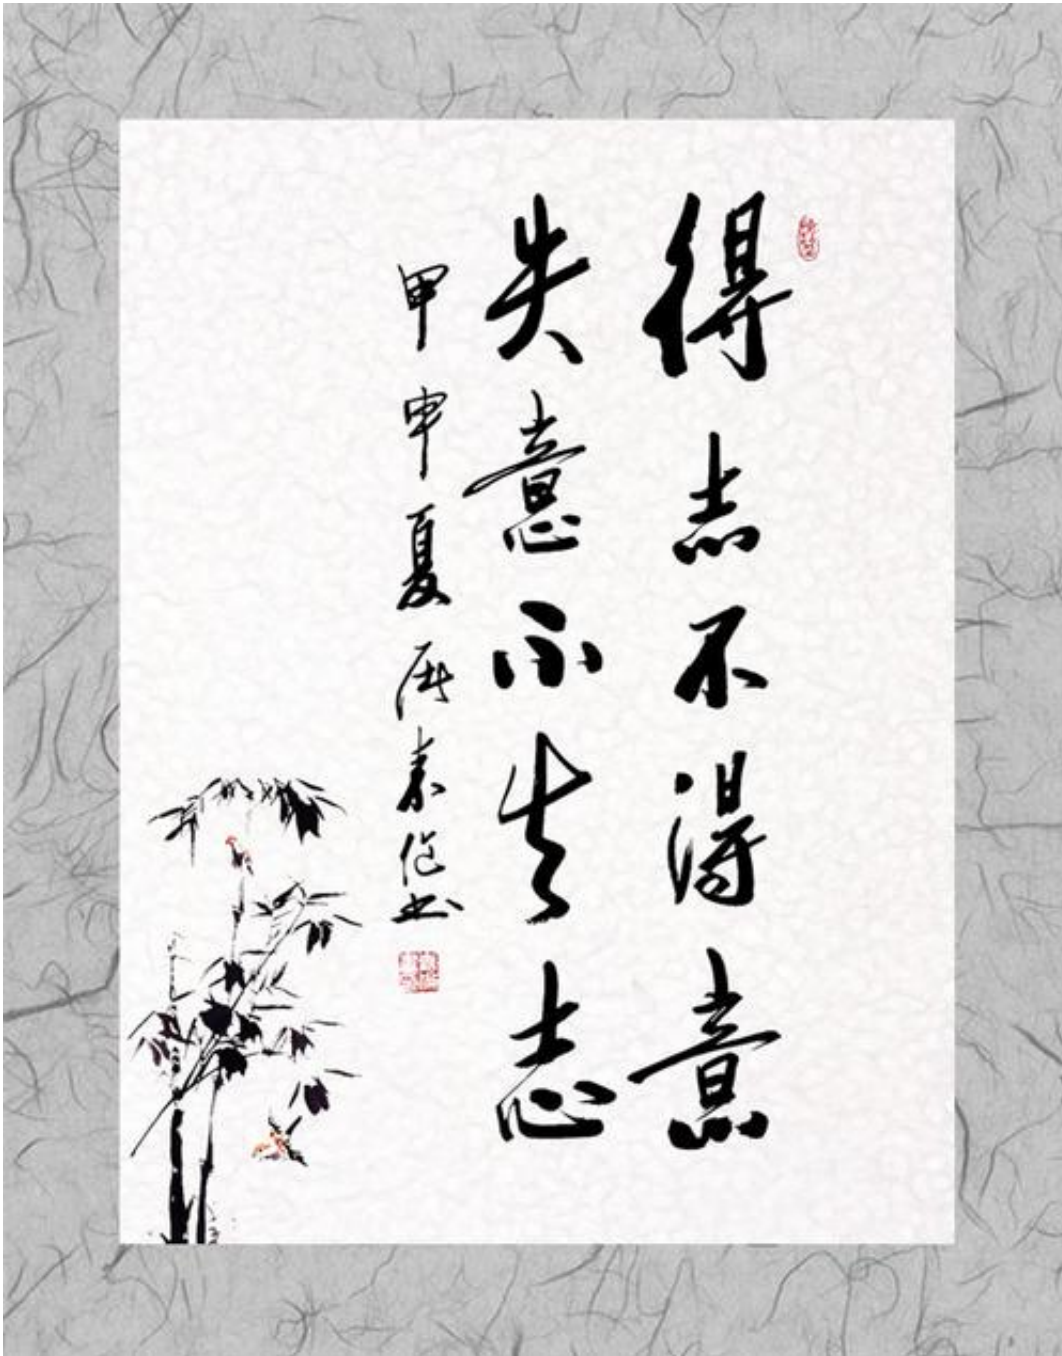 得志不得意
失意不失志
甲申夏 泰 书